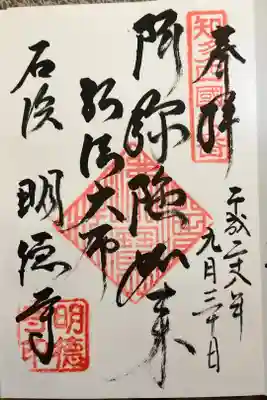 奉拝
平成二十八年
九月三十日
阿弥陀如来
弘法大師
石浜 明徳寺
明徳寺印